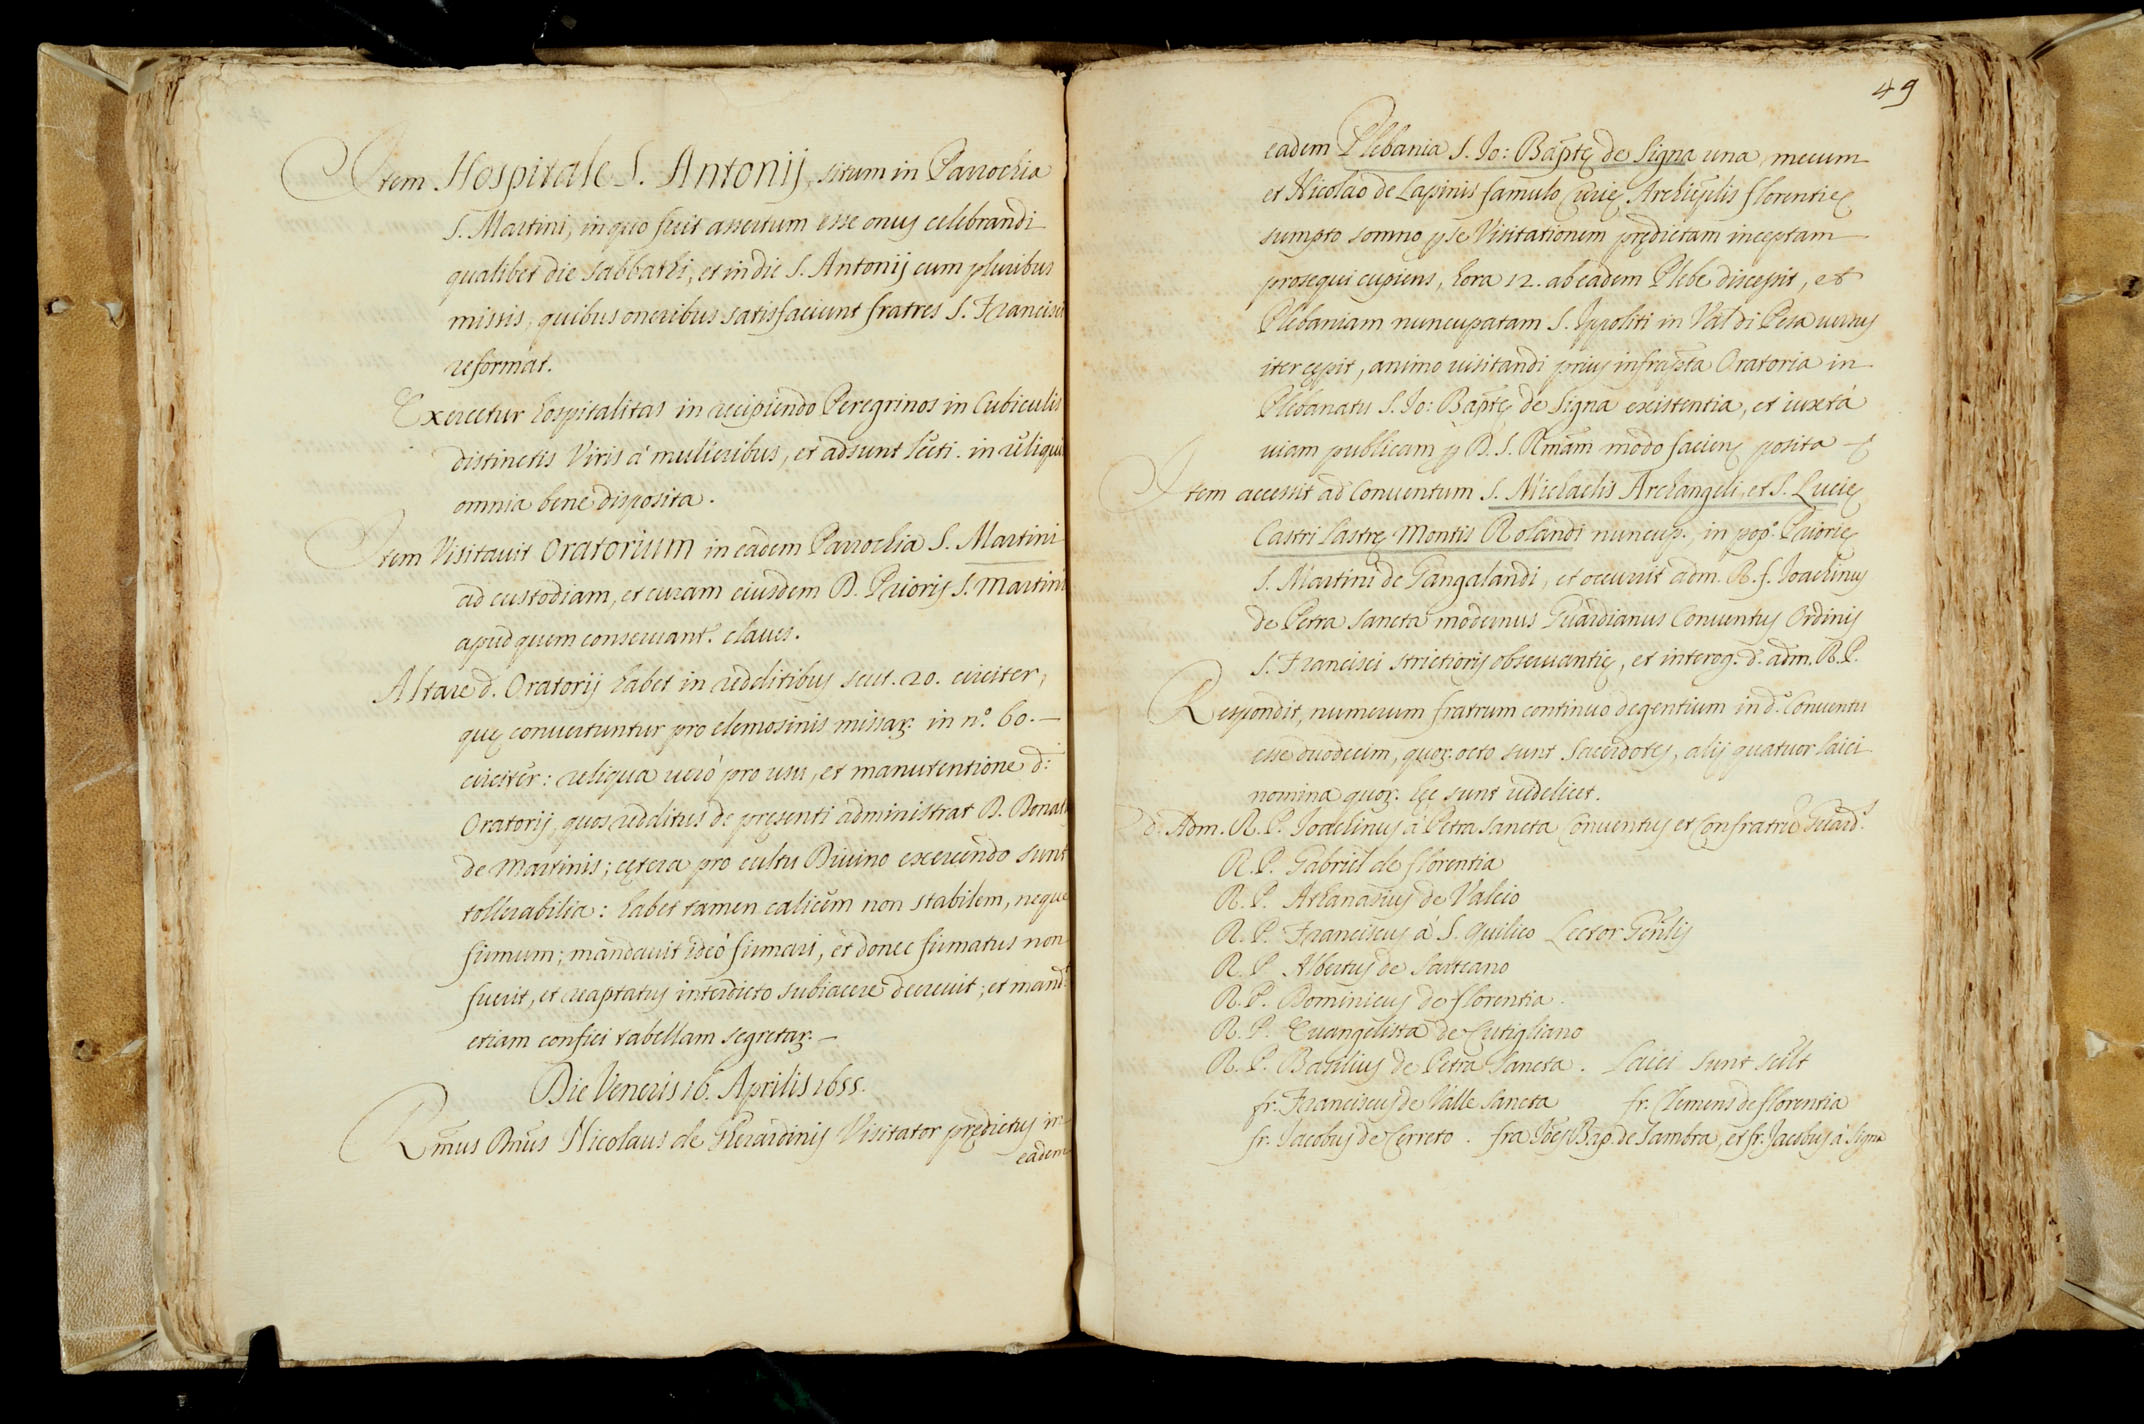 Item Hospitale S. Antonij, situm in Parrochia
S. Martini, in quo fuit assertum esse onus celebrandi
qualibet die sabbathi, et in die S. Antonij cum pluribus
missis, quibus oneribus satisfaciunt fratres S. Francisci
reformat.
Exercetur hospitalitas in recipiendo Peregrinos in Cubiculis
distinctis Viris à mulieribus, et adsunt lecti. in reliquis
omnia bene disposita.
Item Visitavit Oratorium in eadem Parrochia S. Martini
ad custodiam, et curam eiusdem D. Prioris S. Martini
apud quem conseruant. claues.
Altare d. Oratorij habet in redditibus scut. 20. circiter,
quę conuertuntur pro elemosinis missar. in n.º 60.—
circiter: reliqua uerò pro usu, et manutentione d:
Oratorij, quos redditus de pręsenti administrat D. Donat
de Martinis; cętera pro cultu Diuino exercendo sunt
tollerabilia: habet tamen calicem non stabilem, neque
firmum; mandauit ideò firmari, et donec firmatus non
fuerit, et reaptatus interdicto subiacere decreuit; et mand.t
etiam confici tabellam segretar.—
Die Veneris 16. Aprilis 1655.
Rmus Dnus Nicolaus de Gherardinis Visitator prędictus in
eadem
49
eadem Plebania S. Io: Baptę de Signa una, mecum
et Nicolao de Lapinis famulo Curię Archieplis florentię
sumpto somno p se Visitationem prędictam inceptam
prosequi cupiens, hora 12. ab eadem Plebe discessit, et
Plebaniam nuncupatam S. Ippoliti in Val di Pesa uersus
iter cępit, animo uisitandi prius infrapta Oratoria in
Plebanatu S. Io: Baptę de Signa existentia, et iuxtà
uiam publicam p D. S. Rmam modo facien posita
Item accessit ad Conuentum S. Michaelis Archangeli, et S. Lucię
Castri lastrę Montis Rolandi nuncup., in pop.º Priorię
S. Martini de Gangalandi, et occurrit adm. R. f. Ioachinus
de Petra sancta modernus Guardianus Conuentus Ordinis
S. Francisci strictioris obseruantię, et interog. d. adm. R. P.
Respondit, numerum fratrum continuo degentium in d.º Conuentu
esse duodecim, quor. octo sunt sacerdotes, alij quatuor laici
nomina quor. hęc sunt uidelicet.
d. Adm. R. P. Ioachinus à Petra sancta Conuentus et Confratrię Guard.s
R. P. Gabriel de florentia
R. P. Athanasius de Valcio
R. P. Franciscus à S. Quilico Lector Gñlis
R. P. Albertus de Sarteano
R. P. Dominicus de florentia.
R. P. Euangelista de Cutigliano
R. P. Basilius de Petra Sancta. Laici sunt scilt
fr. Franciscus de Valle sancta fr. Clemens de florentia
fr. Iacobus de Cerreto. fra Ioẽs Bap. de Iambra, et fr. Iacobus à Signa